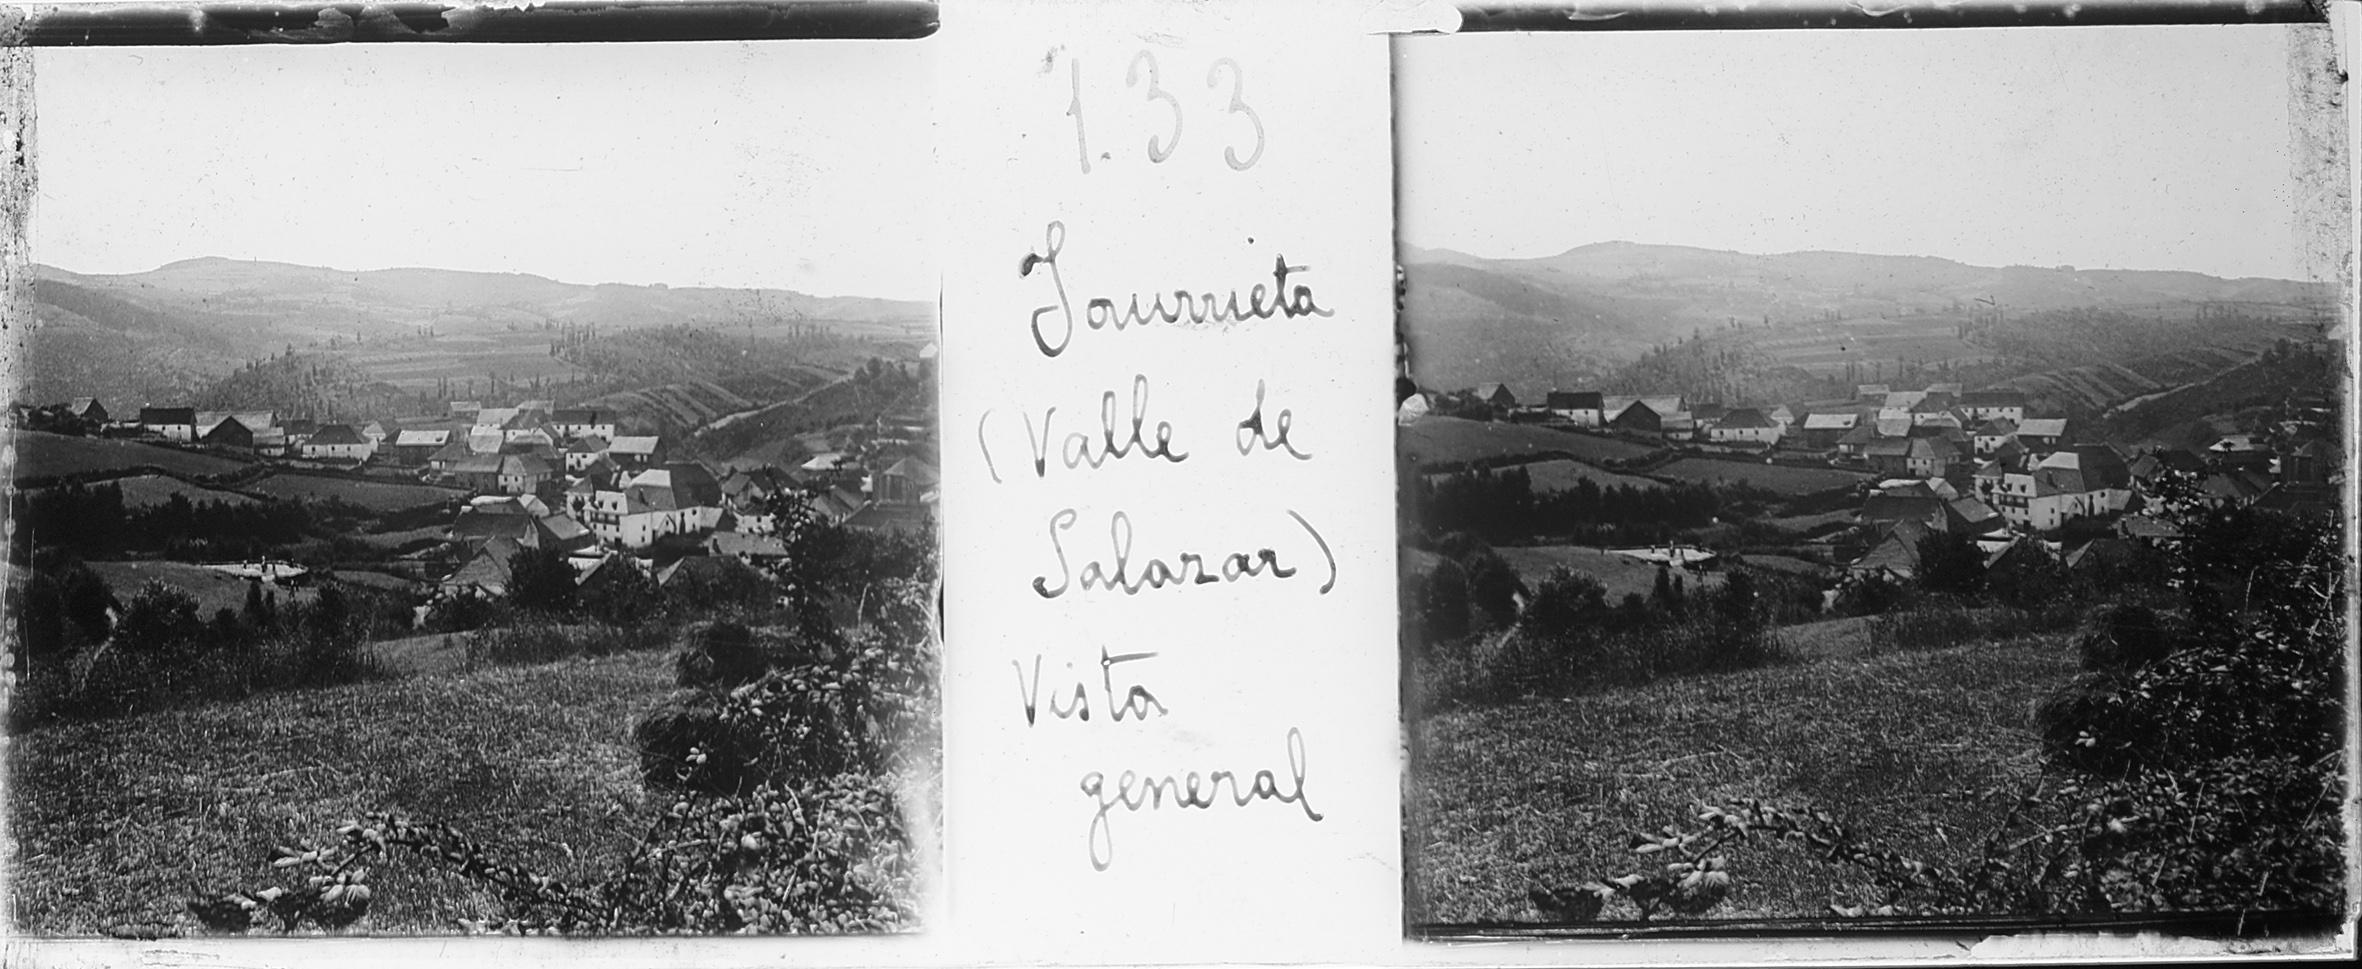 1.33
Jaurrieta
(Valle de
Salazar)
Vista
general